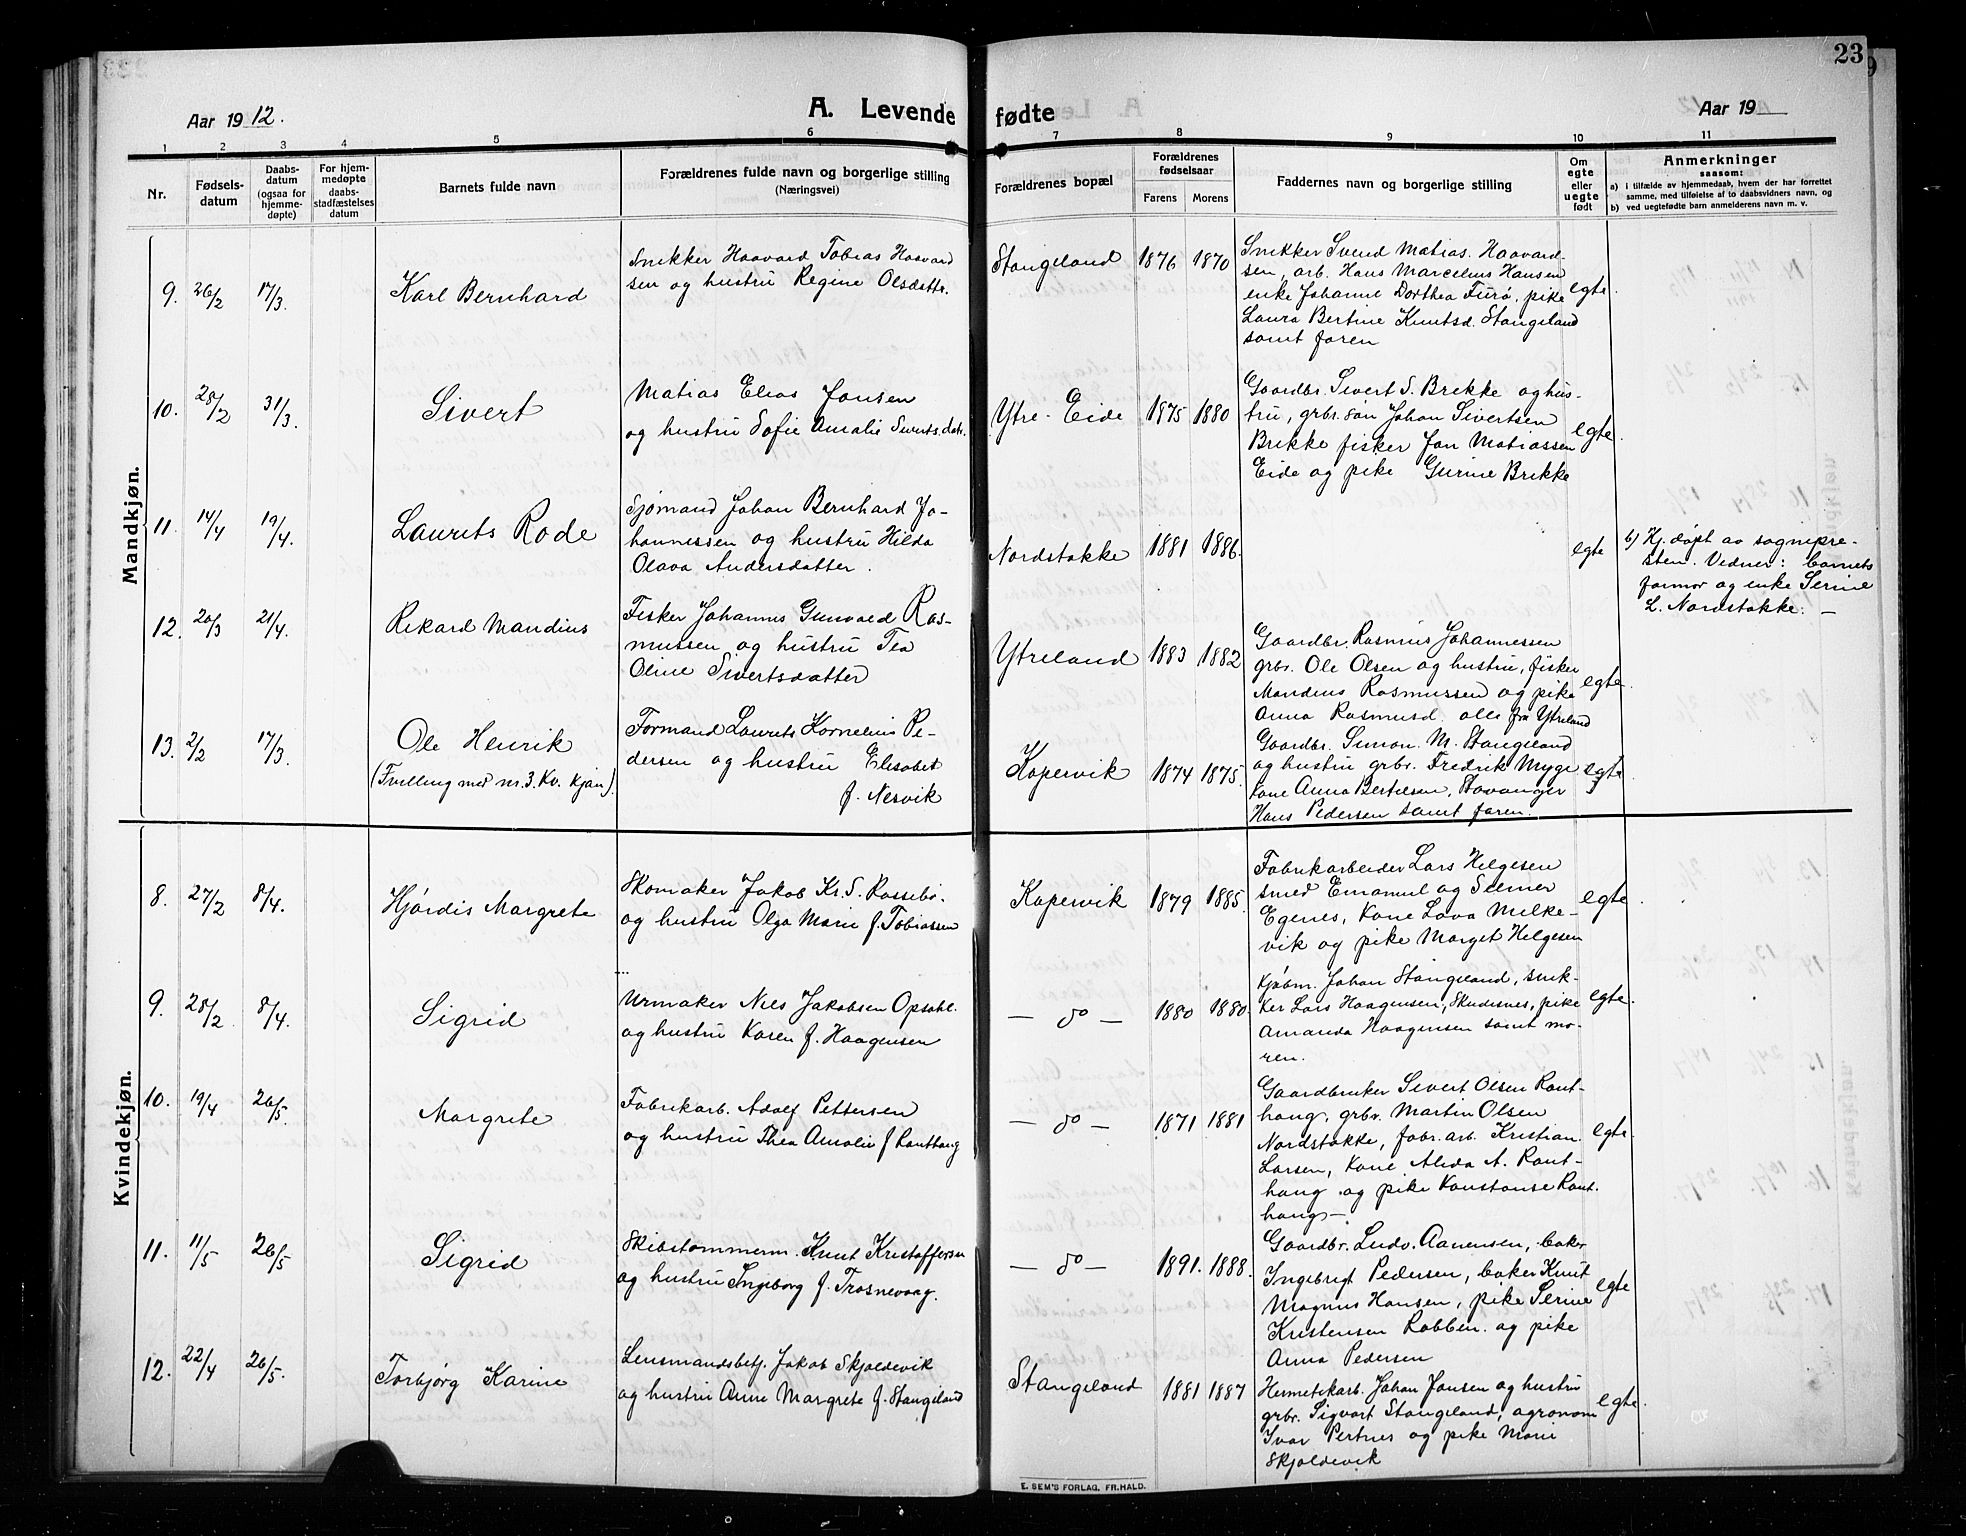 23
Aar 1912.
A. Levende fødte
Aar 19
1 2 3 4 5 6 7 8 9 10 11
Nr.
Fødsels-
datum
Daabs-
datum
(ogsaa for
hjemme-
døpte)
For hjem-
medøpte
daabs-
stadfæstelses
datum
Barnets fulde navn
Forældrenes fulde navn og borgerlige stilling
(Næringsvei)
Forældrenes bopæl
Forældrenes
fødselsaar
Farens Morens
Faddernes navn og borgerlige stilling
Om
egte
eller
uegte
født
Anmerkninger
saasom:
a) i tilfælde av hjemmedaab, hvem der har forrettet
samme, med tilføielse af to daabsvidners navn, og
b) ved uegtefødte barn anmelderens navn m. v.
Mandkjøn.
9. 26/2 17/3. Karl Bernhard
Snekker Haavard Tobias Haavard
sen og hustru Regine Olsdattr.
Stangeland 1876 1870
Snekker Svend Matias. Haavard-
sen, arb. Hans Marcelius Hansen
enke Johanne Dorthea Furø, pike
Laura Bertine Knutsd. Stangeland
samt faren
egte.
10. 28/2 31/3. Sivert
Matias Elias Jansen
og hustru Sofie Amalie Siverts.datr.
Ytre-Eide 1875 1880
Gaardbr. Sivert S. Brekke og hus-
tru, grbr.søn Johan Sivertsen
Brekke fisker Jan Matiassen
Eide og pike Gurine Brekke
egte.
11. 14/4 19/4. Laurits Rode
Sjømand Johan Bernhard Jo-
hannessen og hustru Hilda
Olava Andersdatter.
Nordstokke 1881 1886.
egte
b) Hj. døpt av sognepre-
sten. Vidner: barnets
farmor og enke Serine
L. Nordstokke. —
12. 20/3 21/4. Rikard Mandius
Fisker Johannes Gunvald Ras-
mussen og hustru Tea
Oline Sivertsdatter
Ytreland 1883 1882
Gaardbr. Rasmus Johannessen
grbr. Ole Olsen og hustru, fisker
Mandius Rasmussen og pike
Anna Rasmusd. alle fra Ytreland
egte.
13. 2/2 17/3. Ole Henrik
(Tvilling med nr. 3. Kv. kjøn).
Formand Laurits Kornelius Pe-
dersen og hustru Elisabet
f. Nesvik
Kopervik 1874 1875.
Gaardbr. Simon. M. Stangeland
og hustru grbr. Fredrik Myge
kone Anna Bertelsen, Stavanger
Hans Pedersen samt faren.
egte
Kvindekjøn.
8. 27/2 8/4. Hjørdis Margrete
Skomaker Jakob Kr. S. Rossebø.
og hustru Olga Marie f. Tobiassen
Kopervik 1879 1885.
Fabrikarbeider Lars Helgesen
smed Emanuel og Selmer
Egenes, kone Lava Melke-
vik og pike Marget Helgesen
egte.
9. 28/2 8/4. Sigrid
Urmaker Nils Jakobsen Opsahl.
og hustru Karen f. Haagensen
— do — 1880 1880.
Kjøbm. Johan Stangeland, snek-
ker Lars Haagensen, Skudesnes, pike
Amanda Haagensen samt mo-
ren.
egte.
10. 19/4 26/5. Margrete
Fabrikarb. Adolf Pettersen
og hustru Thea Amalie f Rauthaug
— do — 1871 1881
Gaardbruker Sivert Olsen Raut-
haug, grbr. Martin Olsen
Nordstokke, fabr.arb. Kristian
Larsen, kone Alida A. Raut-
haug og pike Konstanse Raut.
haug —
egte.
11. 11/5 26/5. Sigrid
Skibstømmerm. Knut Kristoffersen
og hustru Ingeborg f. Trosnevaag.
— do — 1891. 1888.
Gaardbr. Ludv. Aanensen, baker
Ingebrigt Pedersen, baker Knut
Magnus Hansen, pike Serine
Kristensen Robben. og pike
Anna Pedersen
egte
12. 22/4 26/5. Torbjørg Karine
Lensmandsbetj. Jakob Skjoldevik
og hustru Anne Margrete f. Stangeland
Stangeland 1881 1887
Hermetikarb. Johan Jansen og hustru
grbr. Sigvart Stangeland, agronom
Ivar Pertnes og pike Marie
Skjoldevik
egte.
E. SEM'S FORLAG, FR.HALD.